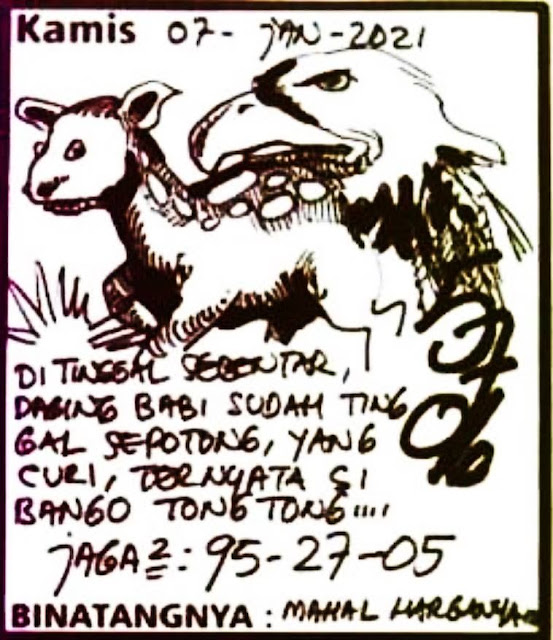 Kamis 07-JAN-2021
DI TINGGAL SEBENTAR,
DAGING BABI SUDAH TING
GAL SEPOTONG, YANG
CURI, TERNYATA SI
BANGO TONG TONG....
JAGA2: 95-27-05
BINATANGNYA : MAHAL HARGANYA